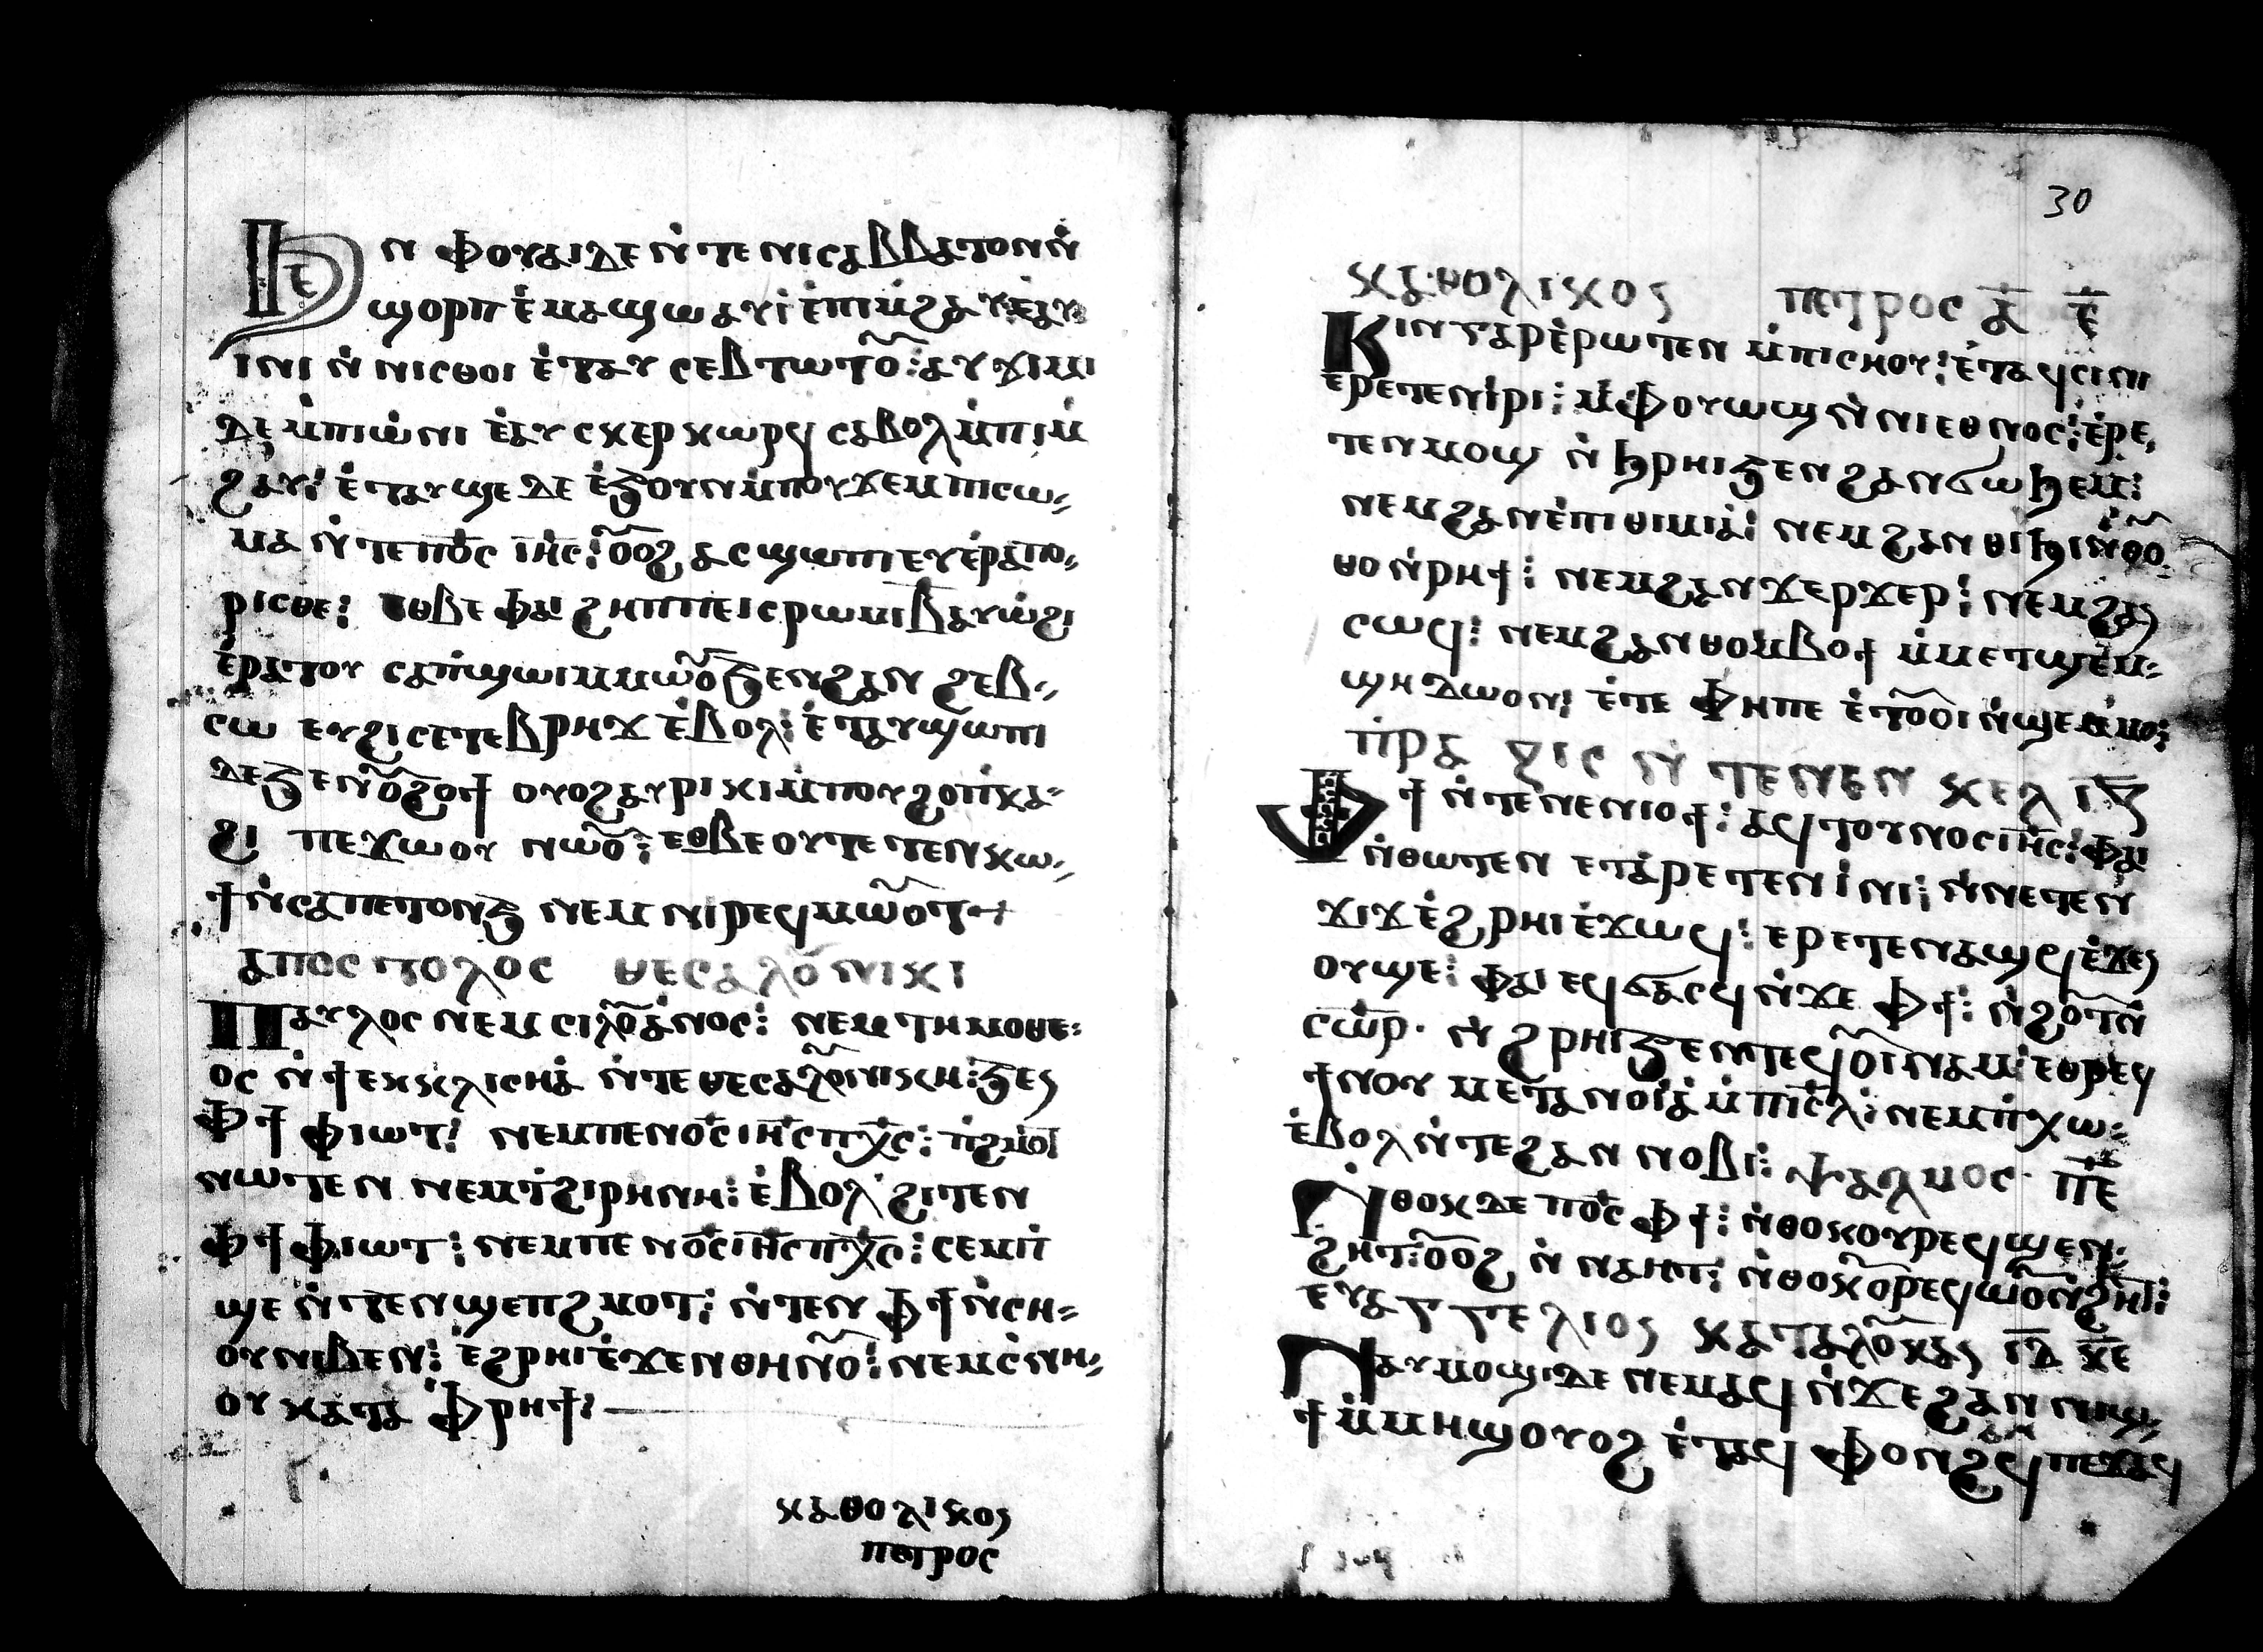 Ϧⲉⲛ ⲫⲟⲩⲁⲓ ⲇⲉ ⲛ̀ⲧⲉ ⲛⲓⲥⲁⲃⲃⲁⲧⲟⲛ ⲛ̀
ϣⲟⲣⲡ ⲉ̀ⲙⲁϣⲱ ⲁⲩⲓ̀ ⲉ̀ⲡⲓⲙ̀ϩⲁⲩ ⲉ̀ⲁⲩ
ⲓⲛⲓ ⲛ̀ ⲛⲓⲥⲑⲟⲓ ⲉ̀ⲧⲁⲩ ⲥⲉⲃⲧⲱⲧⲟ̃ : ⲁⲩϫⲓⲙⲓ
ⲇⲉ ⲙ̀ⲡⲓⲱ̀ⲛⲓ ⲉ̀ⲁⲩ ⲥⲕⲉⲣⲕⲱⲣϥ ⲥⲁⲃⲟⲗ ⲙ̀ⲡⲓⲙ̀
ϩⲁⲩ : ⲉ̀ⲧⲁⲩϣⲉ ⲇⲉ ⲉ̀ϧⲟⲩⲛ ⲙ̀ⲡⲟⲩϫⲉⲙ ⲡⲓⲥⲱ⸗
ⲙⲁ ⲛ̀ⲧⲉ ⲡⲟ̅ⲥ ⲓⲏ̅ⲥ : ⲟ̃ⲟϩ ⲁⲥϣⲱⲡⲓ ⲉⲩⲉ̀ⲣⲁⲡⲟ⸗
ⲣⲓⲥⲑⲉ : ⲉⲑⲃⲉ ⲫⲁⲓ ϩⲏⲡⲡⲉ ⲓⲥ ⲣⲱⲙⲓ ⲃ̅ ⲁⲩⲱ̀ϩⲓ
ⲉ̀ⲣⲁⲧⲟⲩ ⲥⲁⲡ̀ϣⲱⲓ ⲙ̀ⲙⲱⲟ̃ ϧⲉⲛ ϩⲁⲛ ϩⲉⲃ⸗
ⲥⲱ ⲉⲩϩⲓⲥⲉⲧⲉⲃⲣⲏϫ ⲉ̀ⲃⲟⲗ : ⲉ̀ⲧⲁⲩϣⲱⲡⲓ
ⲇⲉ ϧⲉⲛ ⲟ̃ϩⲟϯ ⲟⲩⲟϩ ⲁⲩⲣⲓⲕⲓ ⲙ̀ⲡⲟⲩϩⲟ ⲡ̀ⲕⲁ⸗
ϩⲓ ⲡⲉϫⲱⲟⲩ ⲛⲱⲟ̃ : ⲉⲑⲃⲉⲟⲩ ⲧⲉⲧⲉⲛⲕⲱ⸗
ϯ ⲛ̀ⲥⲁ ⲡⲉⲧⲟⲛϧ ⲛⲉⲙ ⲛⲓⲣⲉϥⲙⲱⲟ̃ⲧ
ⲁⲡⲟⲥⲧⲟⲗⲟⲥ ⲑⲉⲥⲁⲗⲟ̃ⲛⲓⲕⲓ
Ⲡⲁⲩⲗⲟⲥ ⲛⲉⲙ ⲥⲓⲗⲟ̃ⲁ̀ⲛⲟⲥ : ⲛⲉⲙ ⲧⲏⲙⲟⲑⲉ⸗
ⲟⲥ ⲛ̀ϯⲉⲕⲕⲗⲓⲥⲏⲁ̀ ⲛ̀ⲧⲉ ⲑⲉⲥⲁⲗⲟ̃ⲛⲓⲕⲏ : ϧⲉⲛ
ⲫϯ ⲫⲓⲱⲧ : ⲛⲉⲙ ⲡⲉⲛⲟ̅ⲥ ⲓⲏ̅ⲥ ⲡⲭ̅ⲥ : ⲡ̀ϩⲙⲟⲧ
ⲛⲱⲧⲉⲛ ⲛⲉⲙ ⲧ̀ϩⲓⲣⲏⲛⲏ : ⲉ̀ⲃⲟⲗ ϩⲓⲧⲉⲛ
ⲫϯ ⲫⲓⲱⲧ : ⲛⲉⲙ ⲡⲉⲛⲟ̅ⲥ ⲓⲏ̅ⲥ ⲡⲭ̅ⲥ : ⲥⲉⲙⲡ̀
ϣⲉ ⲛ̀ⲧⲉⲛϣⲉⲡϩⲙⲟⲧ : ⲛ̀ⲧⲉⲛ ⲫϯ ⲛ̀ⲥⲏ⸗
ⲟⲩ ⲛⲓⲃⲉⲛ : ⲉ̀ϩⲣⲏⲓ ⲉ̀ϫⲉⲛ ⲑⲏⲛⲟ̃ : ⲛⲉⲛⲥ̀ⲛⲏ⸗
ⲟⲩ ⲕⲁⲧⲁ ⲫ̀ⲣⲏϯ :
ⲕⲁⲑⲟⲗⲓⲕⲟⲥ
ⲡⲉⲧⲣⲟⲥ
30
ⲕⲁⲑⲟⲗⲓⲕⲟⲥ ⲡⲉⲧⲣⲟⲥ ⲁ̅ ⲉ̅
Ⲕⲓⲛ ⲅⲁⲣ ⲉ̀ⲣⲱⲧⲉⲛ ⲙ̀ⲡⲓⲥⲏⲟⲩ : ⲉ̀ⲧⲁϥⲥⲓⲛⲓ
ⲉⲣⲉⲧⲉⲛⲓ̀ⲣⲓ : ⲙ̀ⲫⲟⲩⲱϣ ⲛ̀ⲛⲓⲉⲑⲛⲟⲥ : ⲉ̀ⲣⲉ⸗
ⲧⲉⲛⲙⲟϣⲓ ⲛ̀ϧⲣⲏⲓ ϧⲉⲛ ϩⲁⲛϭⲱϧⲉⲙ :
ⲛⲉⲙ ϩⲁⲛⲉ̀ⲡⲓⲑⲓⲙⲓⲁ̀ : ⲛⲉⲙ ϩⲁⲛⲑⲓϧⲓ ⲛ̀ⲑⲟ̃⸗
ⲑⲟ ⲛ̀ⲣⲏϯ : ⲛⲉⲙ ϩⲁⲛϫⲉⲣϫⲉⲣ : ⲛⲉⲙ ϩⲁⲛ
ⲥⲱϥ : ⲛⲉⲙ ϩⲁⲛⲑⲟⲙⲃⲟϯ ⲙ̀ⲙⲉⲧϣⲉⲙ⸗
ϣⲏ ⲇⲱⲟⲛ : ⲉ̀ⲧⲉ ⲫⲏⲡⲉ ⲉ̀ⲧⲟ̃ⲟⲓ ⲛ̀ϣⲉⲙ̀ⲙⲟ :
ⲡ̀ⲣⲁⲝⲓⲥ ⲛ̀ⲧⲉⲛⲉⲛ ⲕⲉⲗ ⲓ̅ⲍ̅
Ⲫϯ ⲛ̀ⲧⲉ ⲛⲉⲛⲓⲟϯ : ⲁϥⲧⲟⲩⲛⲟⲥ ⲓⲏ̅ⲥ : ⲫⲁⲓ
ⲛ̀ⲑⲱⲧⲉⲛ ⲉⲧⲁ̀ⲣⲉⲧⲉⲛⲓ̀ⲛⲓ : ⲛ̀ⲛⲉⲧⲉⲛ
ϫⲓϫ ⲉ̀ϩⲣⲏⲓ ⲉ̀ϫⲱϥ : ⲉⲣⲉⲧⲉⲛⲁϣϥ ⲉ̀ϫⲉⲛ
ⲟⲩϣⲉ : ⲫⲁⲓ ⲉϥϭⲁⲥϥ ⲛ̀ϫⲉ ⲫϯ : ⲛ̀ϩⲟ̃ⲧⲛ̀
ⲥⲱ̅ⲣ · ⲛ̀ϩⲣⲏⲓ ϧⲉⲛ ⲧⲉϥⲟ̃ⲓ̀ⲛⲁⲙ : ⲉⲑⲣⲉϥ
ϯⲛⲟⲩ ⲙⲉⲧⲁⲛⲟⲓⲁ̀ ⲙ̀ⲡⲓⲥ̅ⲗ : ⲛⲉⲙ ⲡ̀ⲭⲱ⸗
ⲉ̀ⲃⲟⲗ ⲛ̀ⲧⲉ ϩⲁⲛ ⲛⲟⲃⲓ : ⲯⲁⲗⲙⲟⲥ · ⲡ̅ⲉ̅
Ⲛ̀ⲑⲟⲕ ⲇⲉ ⲡⲟ̅ⲥ ⲫϯ : ⲛ̀ⲑⲟⲕ ⲟⲩⲣⲉϥϣⲉⲛ⸗
ϩⲏⲧ : ⲟ̃ⲟϩ ⲛ̀ ⲛⲁⲏⲧ : ⲛ̀ⲑⲟⲕ ⲟ̃ⲣⲉϥⲱⲟ̃ⲛ̀ϩⲏⲧ :
ⲉⲩⲁⲅⲅⲉⲗⲓⲟⲛ ⲕⲁⲧⲁ ⲗⲟ̃ⲕⲁⲛ ⲓ̅ⲇ̅ ⲕ̅ⲉ̅
Ⲛⲁⲩⲙⲟϣⲓ ⲇⲉ ⲛⲉⲙⲁϥ ⲛ̀ϫⲉ ϩⲁⲛ ⲛⲓϣ⸗
ϯ ⲙ̀ⲙⲏϣ ⲟⲩⲟϩ ⲉ̀ⲧⲁϥ ⲫⲟⲛϩϥ ⲡⲉϫⲁϥ